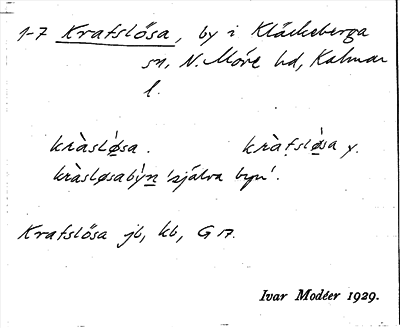 1-7 Krafslösa, by i Kläckeberga
sn, N. Möre hd, Kalmar
l.
kràslø̀sa. kràfslø̀sa y.
kràsløsabỳn 'själva byn'.
Krafslösa jb, kb, G 17.
Ivar Modéer 1929.